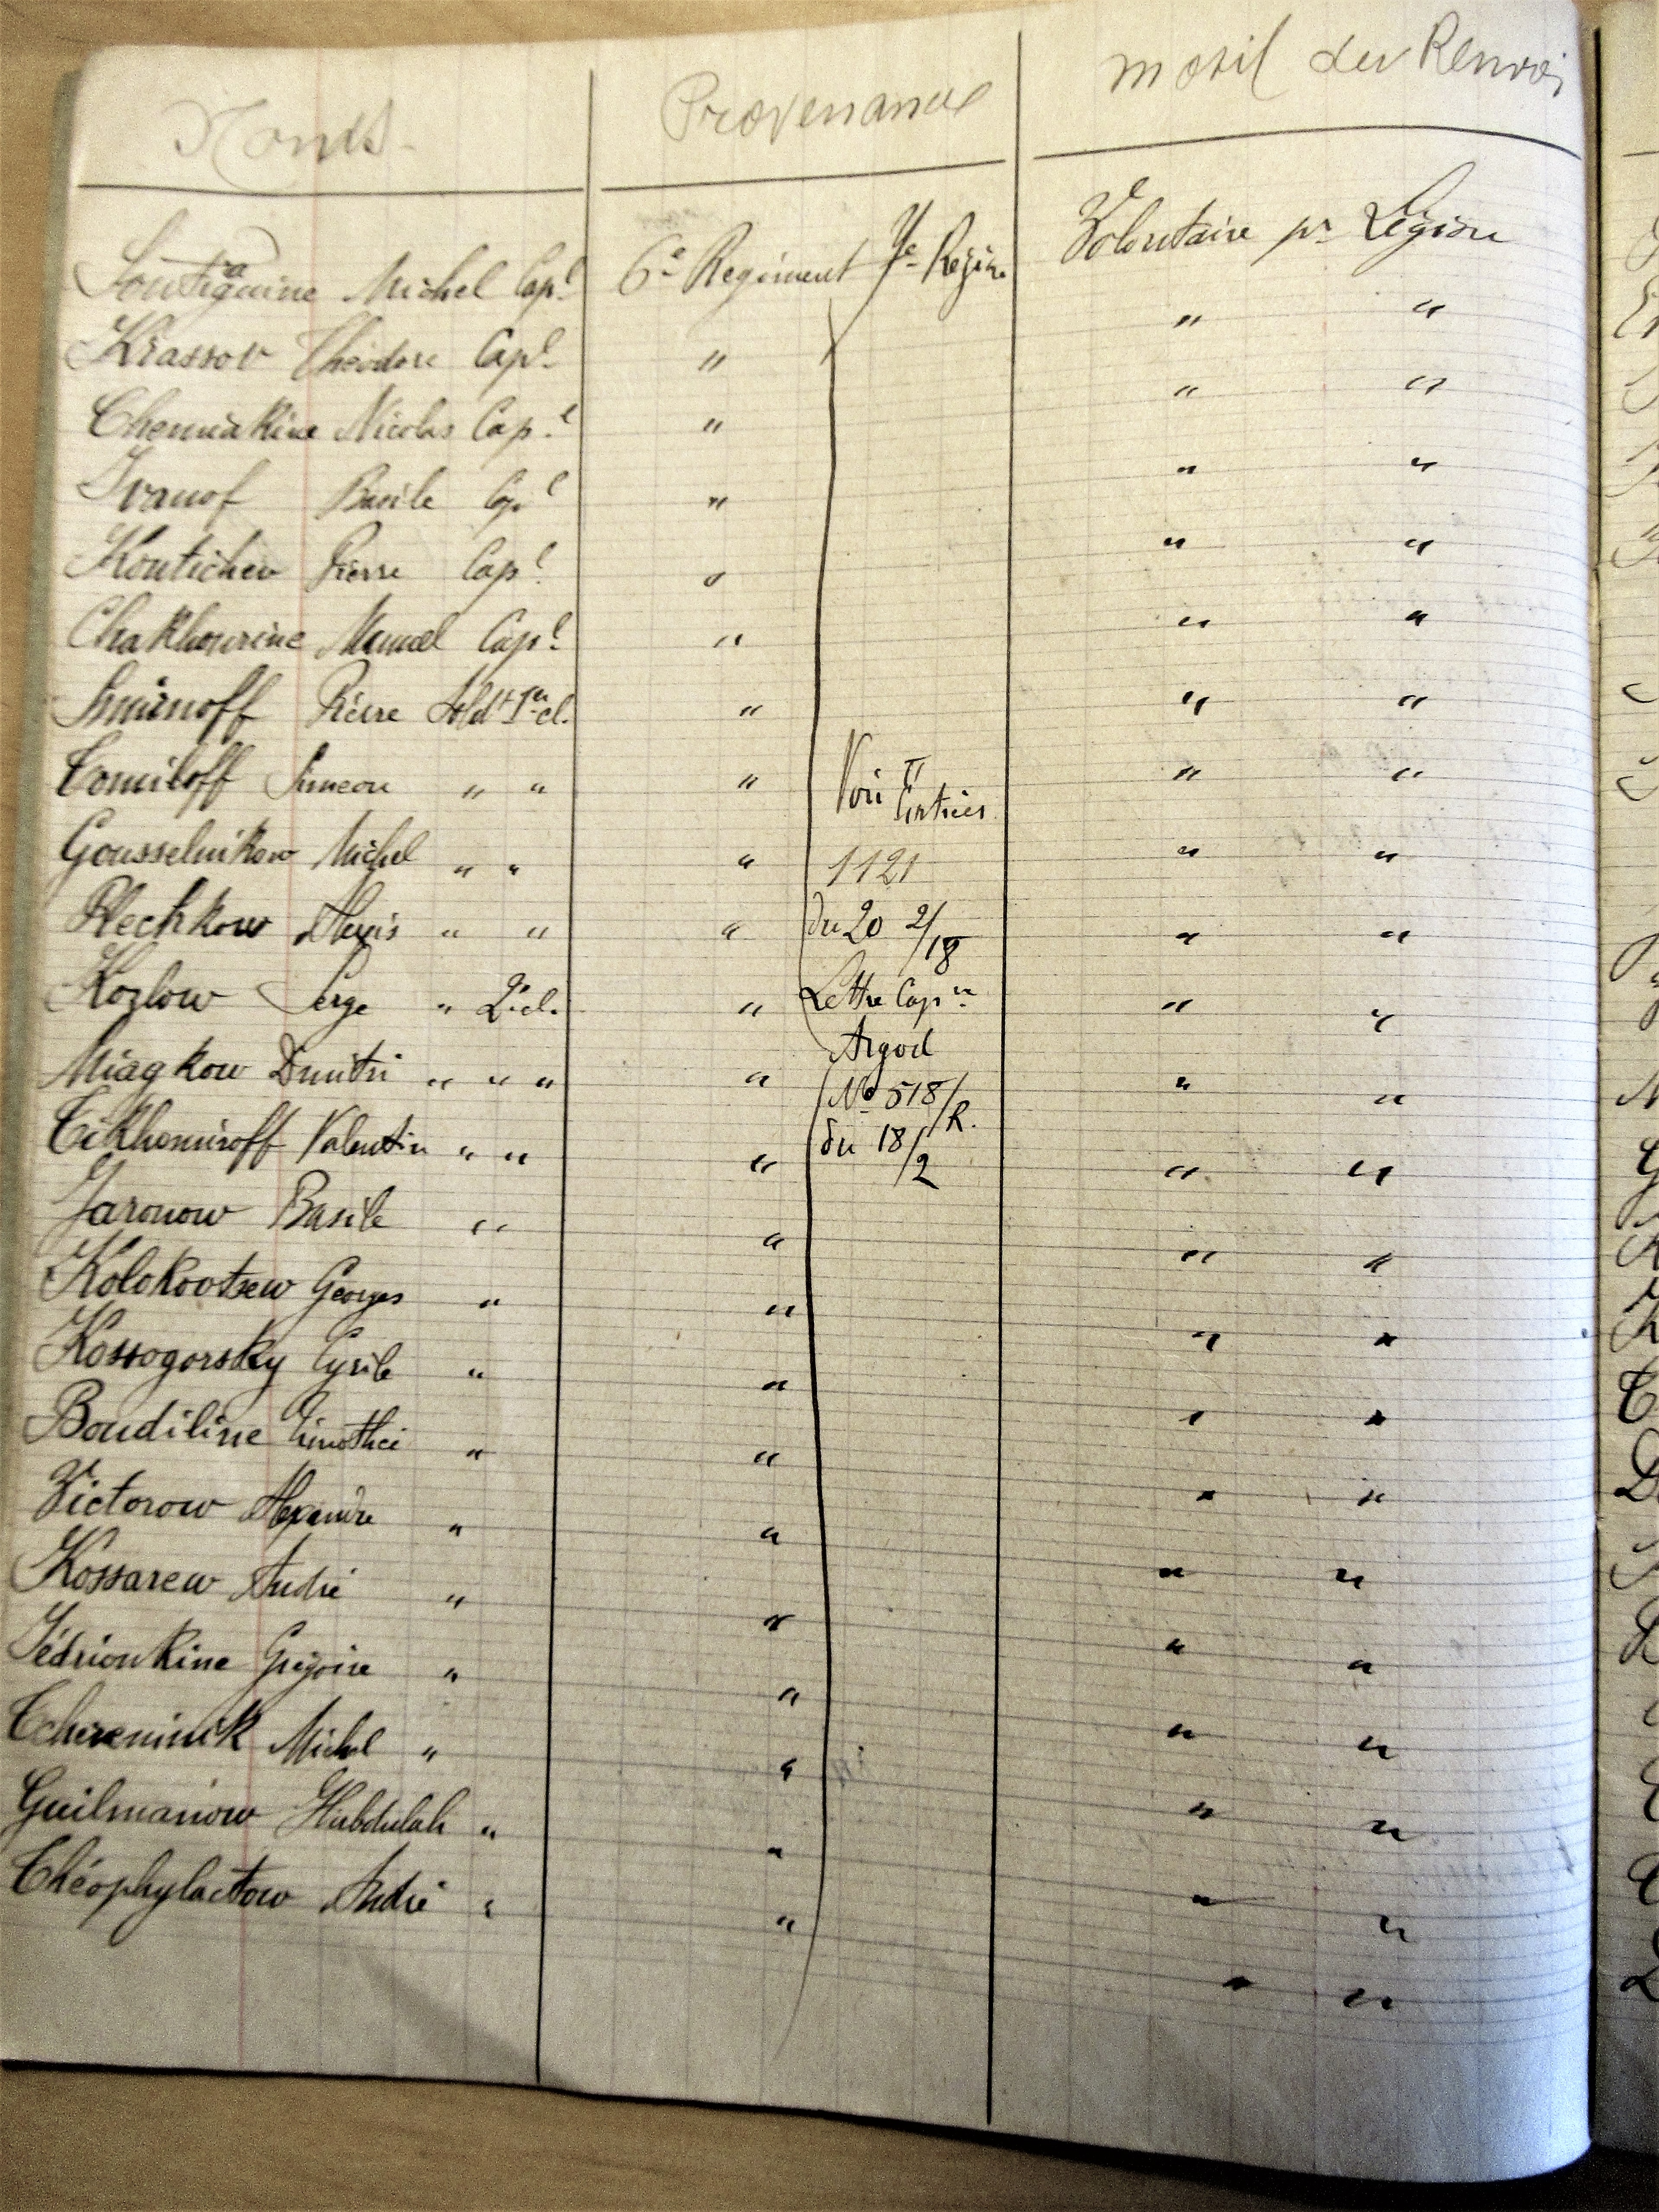 Noms Provenance motif du Renvoi
Soutiaguine Michel Capl 6e Regiment Volontaire pr Légion
Krassov Théodore Capl " " "
Chemiakine Nicolas Capl " " "
Ivanof Basile Cpl " " "
Koutichev Pierre Capl " " "
Chakhourine Manuel Capl " " "
Smirnoff Pierre Soldt 1re cl. " " "
Tomiloff Simeon " " " Voir II Entrées " "
Gousselnikow Michel " " " 1121 " "
Plechkow Alexis " " " du 20 2/18 " "
Kozlow Serge " 2e cl. " Lettre Capne " "
Argod
Miagkow Dmitri " " " " No 518/R. " "
Tikhomiroff Valentin " " " du 18/2 " "
Jaronow Basile " " " "
Kolokovtsew Georges " " " "
Kossogorsky Cyrile " " " "
Boudiline Timothée " " " "
Victorow Alexandre " " " "
Kossarew André " " " "
Jédrionkine Grégoire " " " "
Tchereninik Michel " " " "
Guilmanow Habdulah " " " "
Théophylactow André " " " "